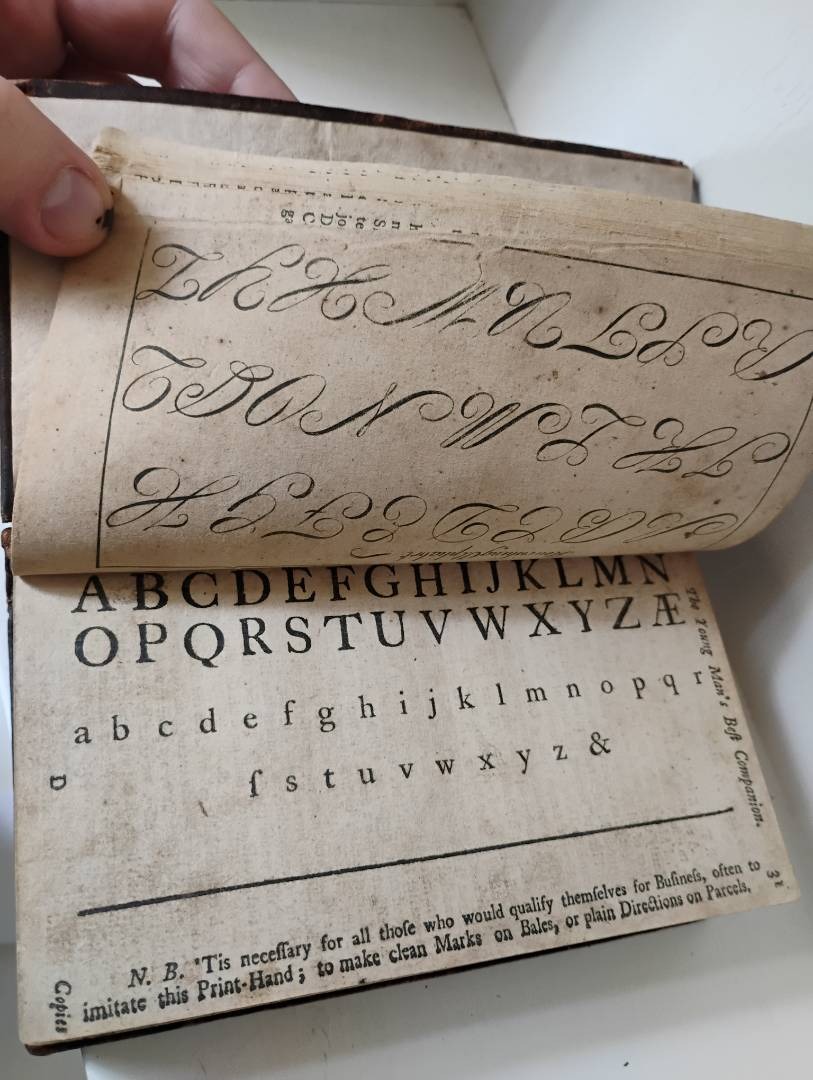 A B C D E F G H I J K L M N
O P Q R S T U V W X Y Z Æ
a b c d e f g h i j k l m n o p q r
ſ s t u v w x y z &
N. B. 'Tis neceſſary for all thoſe who would qualify themſelves for Buſineſs, often to
imitate this Print-Hand; to make clean Marks on Bales, or plain Directions on Parcels.
The Young Man's Beſt Companion.
31
D
Copies
A B C D E F G H
I K L M N O P Q
R S T U W X Y Z